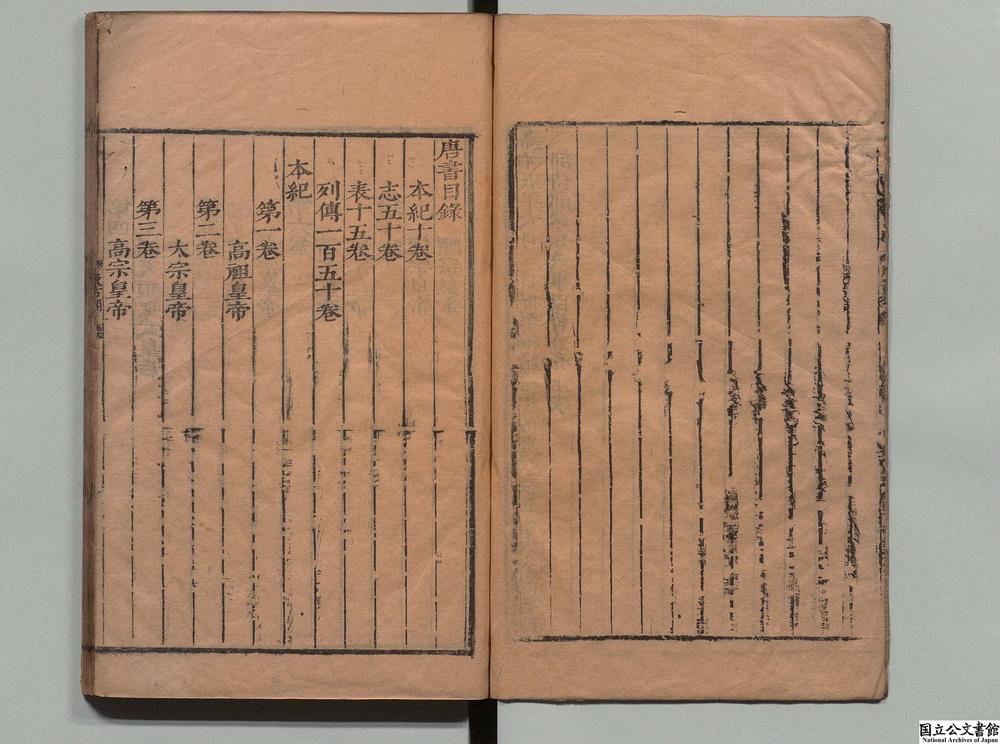 唐書目錄
本紀十卷
志五十卷
表十五卷
列傳一百五十卷
本紀
第一卷
高祖皇帝
第二卷
太宗皇帝
第三卷
高宗皇帝
国立公文書館
National Archives of Japan